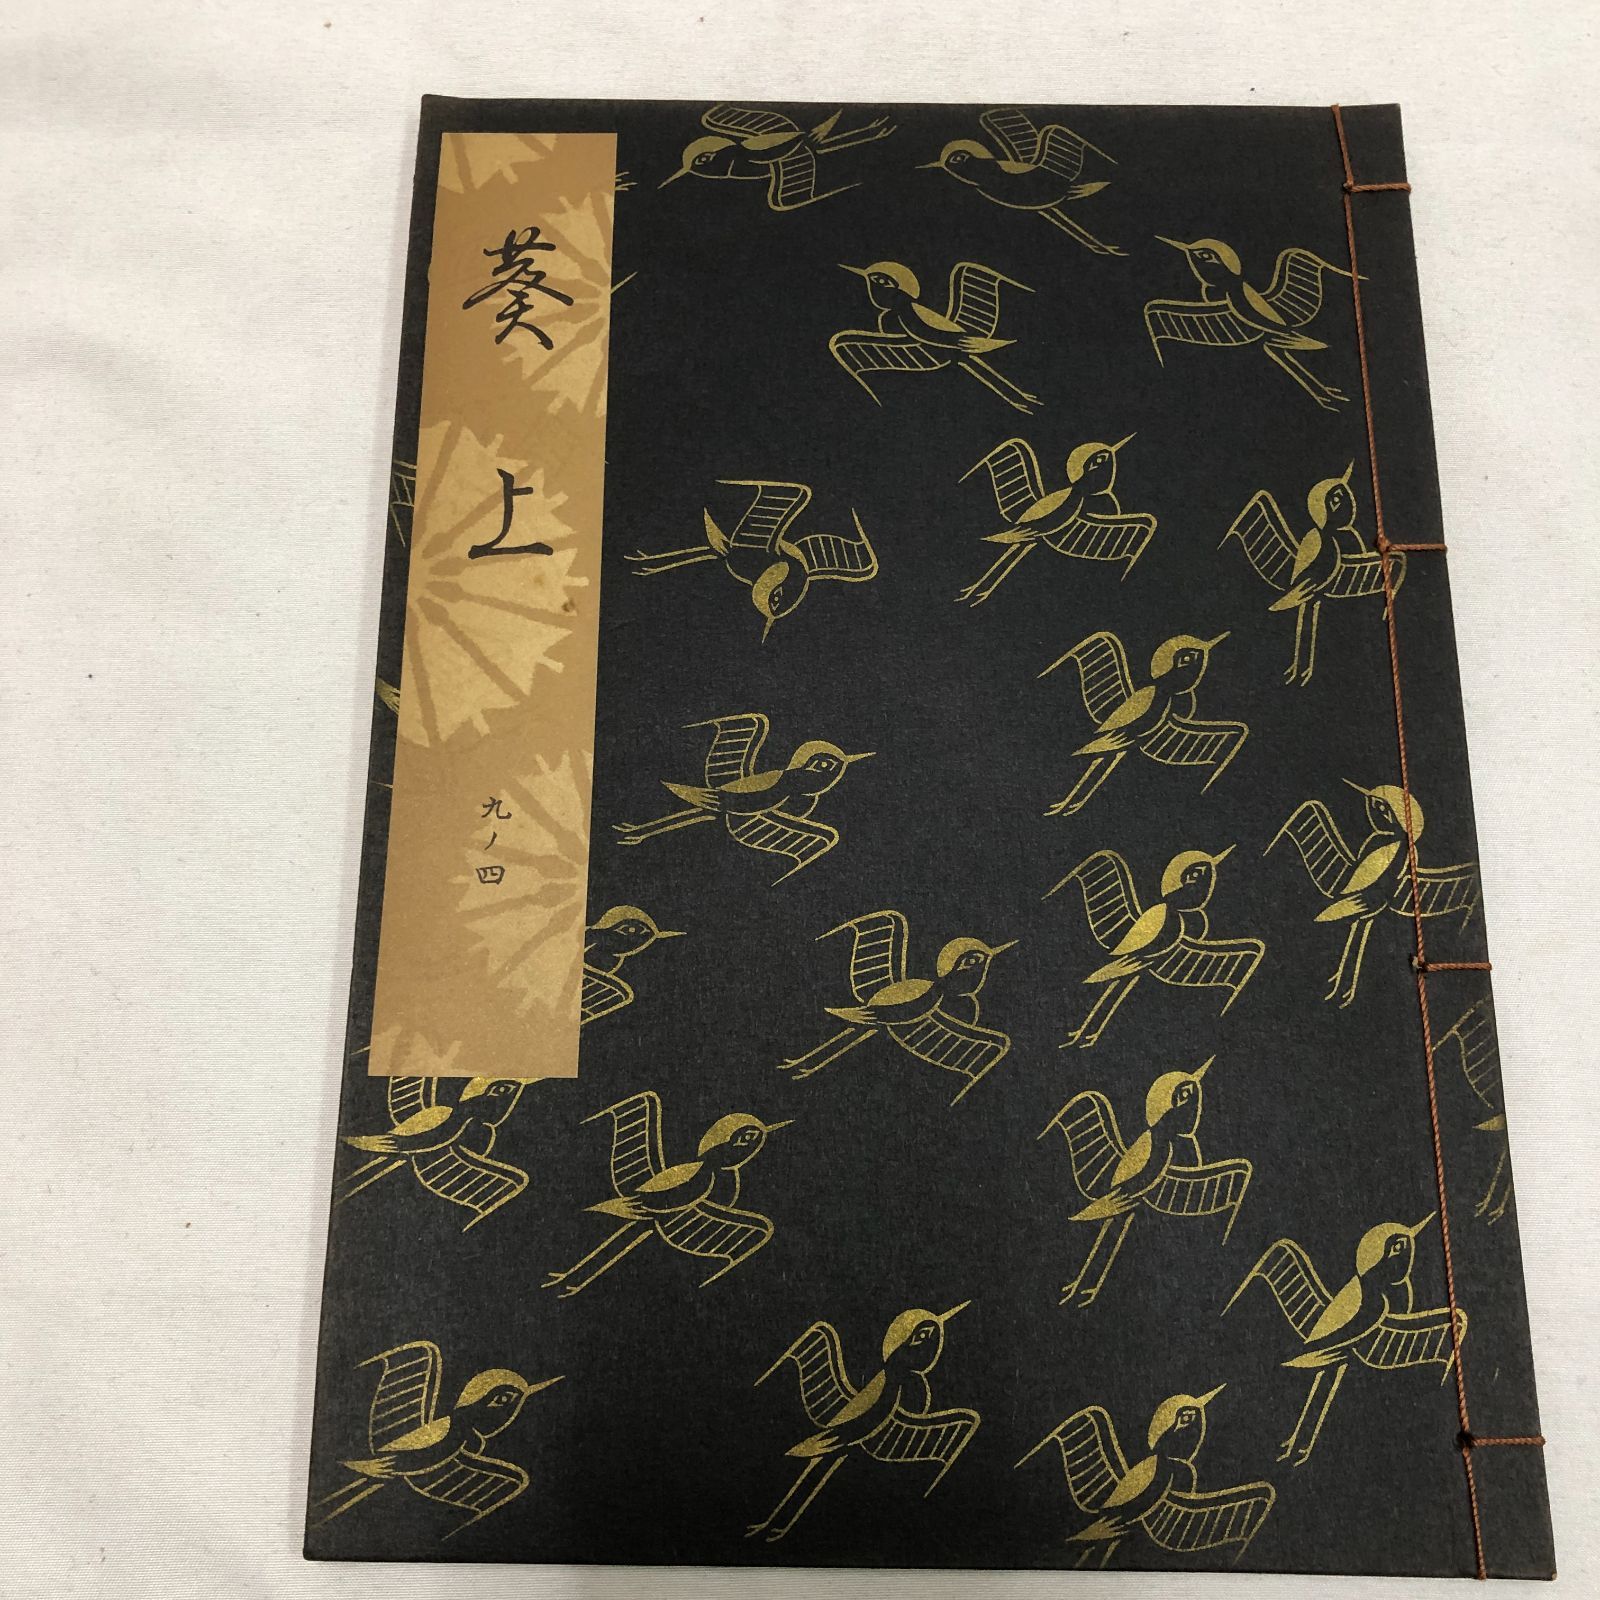 葵上
九ノ四